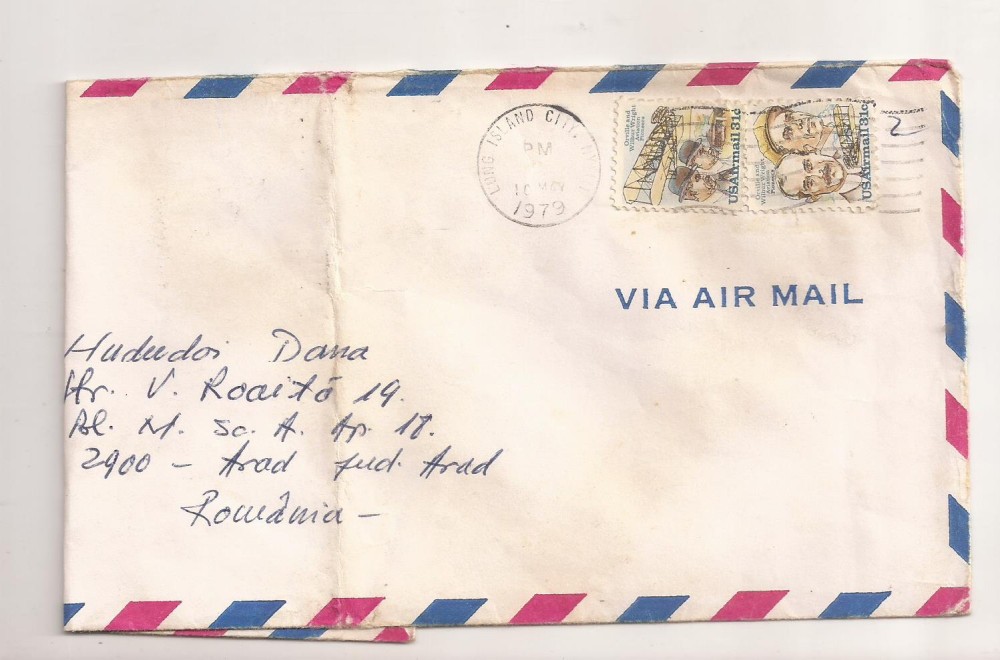 LONG ISLAND CITY, NY
PM
1979
Orville and
Wilbur Wright
Aviation
Pioneers
USAirmail 31c
Orville and
Wilbur Wright
Aviation
Pioneers
USAirmail 31c
2
VIA AIR MAIL
Dana
Str. V. Roaită 19.
Bl. M. Sc. A. Ap. 18.
2900 - Arad jud. Arad
România -